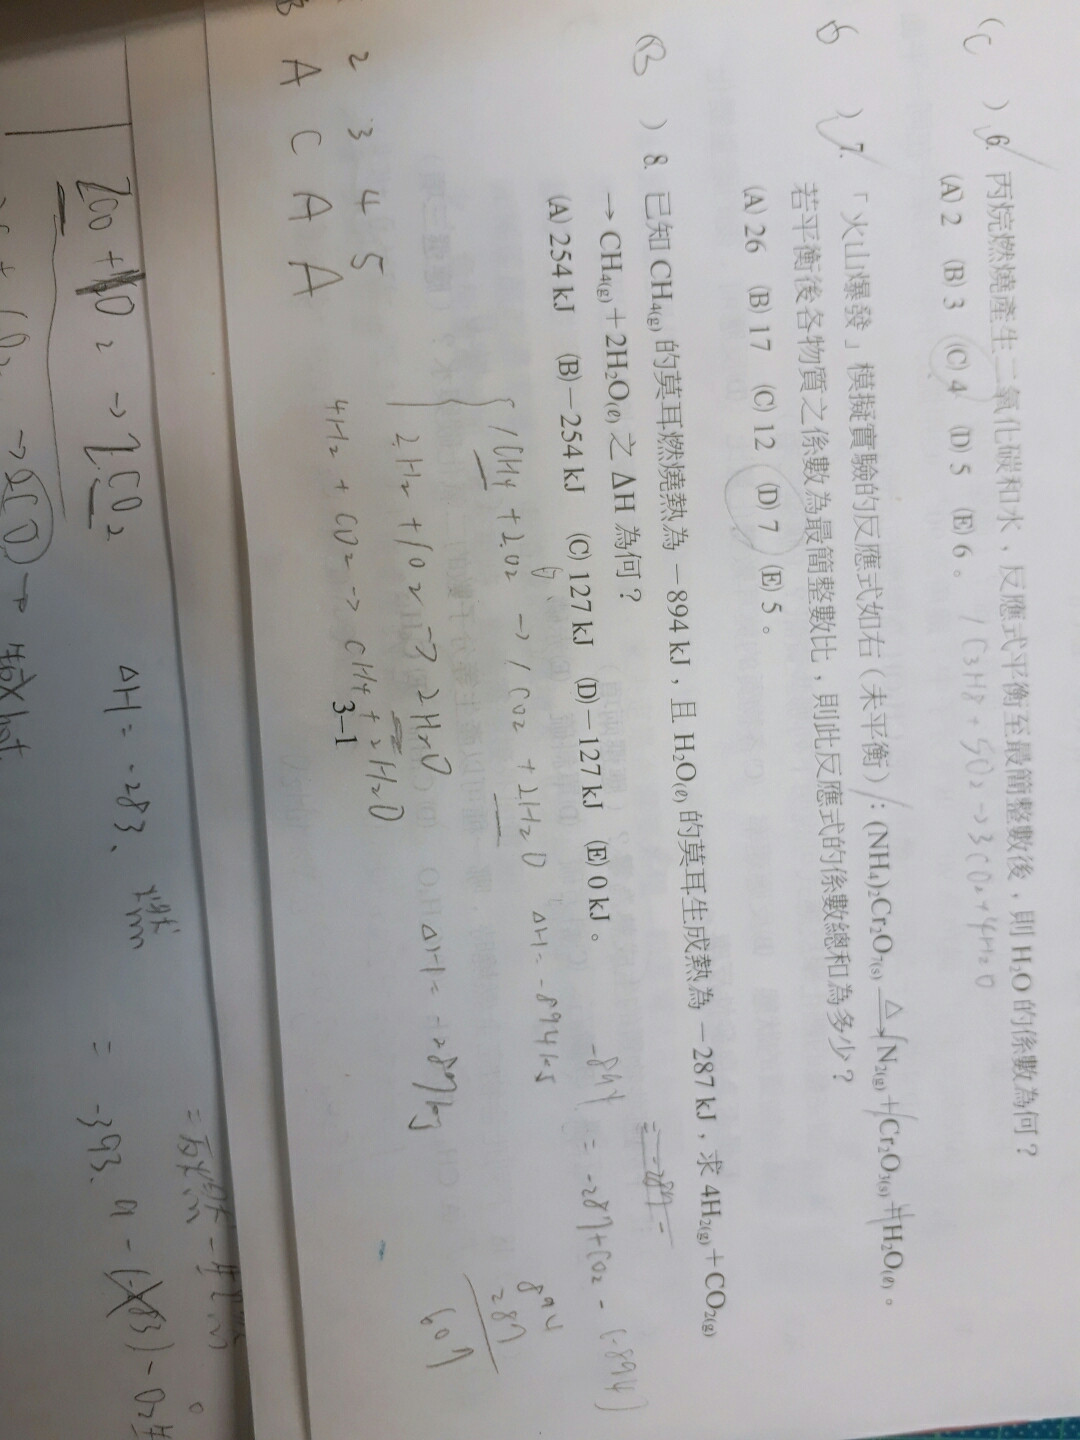 (C ) 6. 丙烷燃燒產生二氧化碳和水，反應式平衡至最簡整數後，則 H₂O 的係數為何？
(A) 2 (B) 3 (C) 4 (D) 5 (E) 6。
1 C3H8 + 5O2 → 3CO2 + 4H2O
D ) 7. 「火山爆發」模擬實驗的反應式如右（未平衡）：(NH₄)₂Cr₂O₇₍s₎ —△→ N₂₍g₎＋Cr₂O₃₍s₎＋H₂O₍ℓ₎。
若平衡後各物質之係數為最簡整數比，則此反應式的係數總和為多少？
(A) 26 (B) 17 (C) 12 (D) 7 (E) 5。
(B ) 8. 已知 CH₄₍g₎ 的莫耳燃燒熱為－894 kJ，且 H₂O₍ℓ₎ 的莫耳生成熱為－287 kJ，求 4H₂₍g₎＋CO₂₍g₎
→ CH₄₍g₎＋2H₂O₍ℓ₎ 之 ΔH 為何？
(A) 254 kJ (B)－254 kJ (C) 127 kJ (D)－127 kJ (E) 0 kJ。
-894 = -287 + CO2 - (-894)
1CH4 + 2O2 → 1CO2 + 2H2O ΔH = -894kJ
894
287
607
2H2 + 1O2 → 2H2O ΔH =
4H2 + CO2 → CH4 + 2H2O
3–1
2 3 4 5
B A C A A
2CO + O2 → 2CO2 ΔH = -283、 = -393.